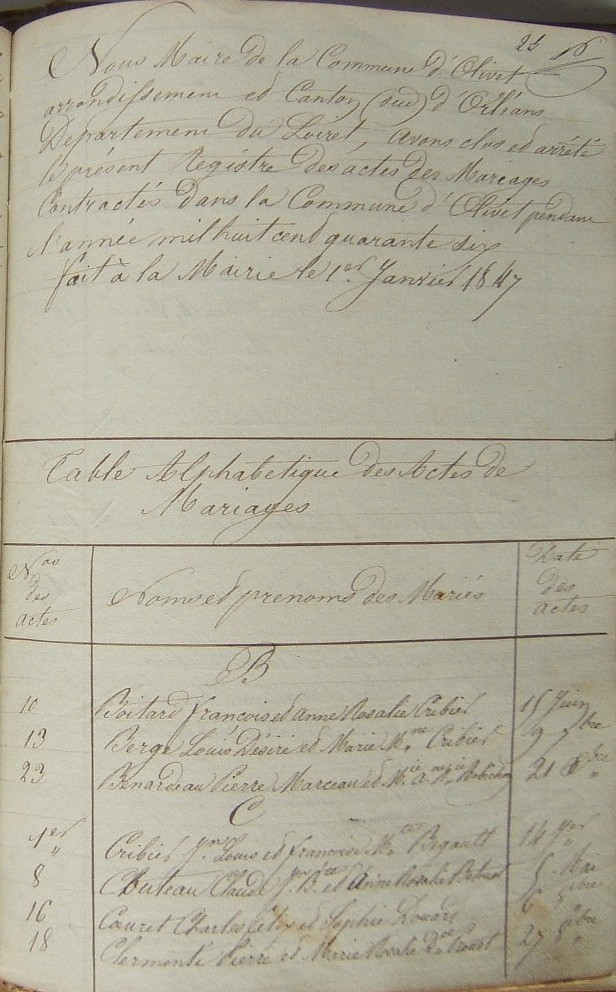 25
Nous Maire de la Commune d'Olivet
arrondissement et Canton (sud) d'Orléans
Departement du Loiret, avons clos et arrêté
le présent Registre des actes des Mariages
Contractés dans la Commune d'Olivet pendant
l'année mil huit cent quarante six
fait à la Mairie le 1er Janvier 1847
Table Alphabetique des Actes de
Mariages
Nos des actes
Noms et prenoms des Mariés
Date des actes
B
10 Boitard francois et Anne Rosalie Cribier 15 Juin
13 Berge Louis Désiré et Marie Cribier 9 7bre
23 Benardeau Pierre Marceau et 21
C
1er Cribier Louis et francoise Begault 14
8 Chuteau Claude J. B. et Anne Rosalie 5 Mai
16 Couret Charles félix et Sophie 6
18 Clermonté Pierre et Marie Rosalie 27